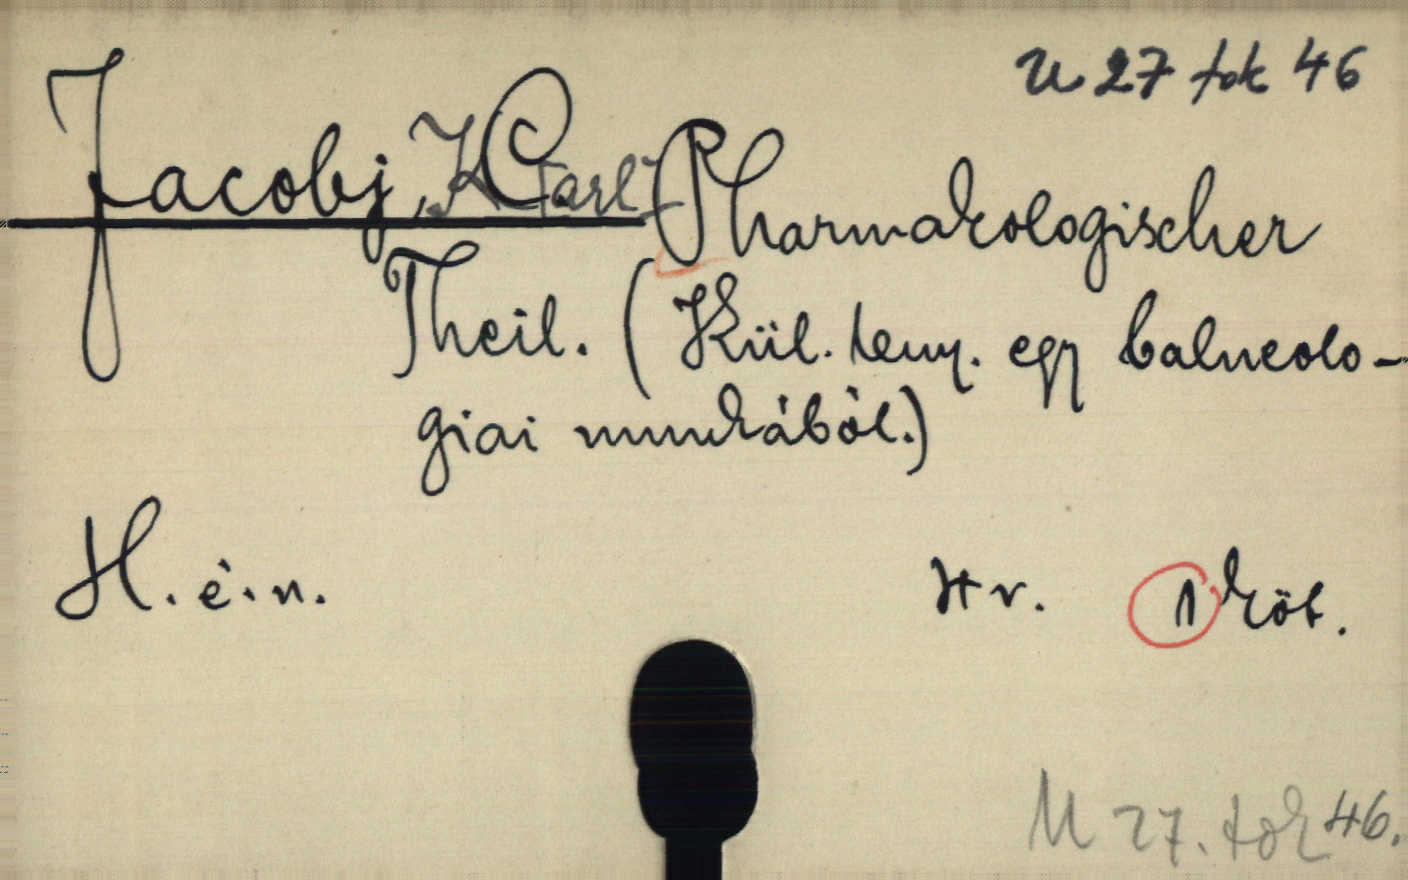 U 27 tok 46
Jacobj, Karl Pharmakologischer
Theil. (Kül. leny. egy balneolo-
giai munkából.)
H. é. n.
4 r. 1 köt.
M 27. tok 46.